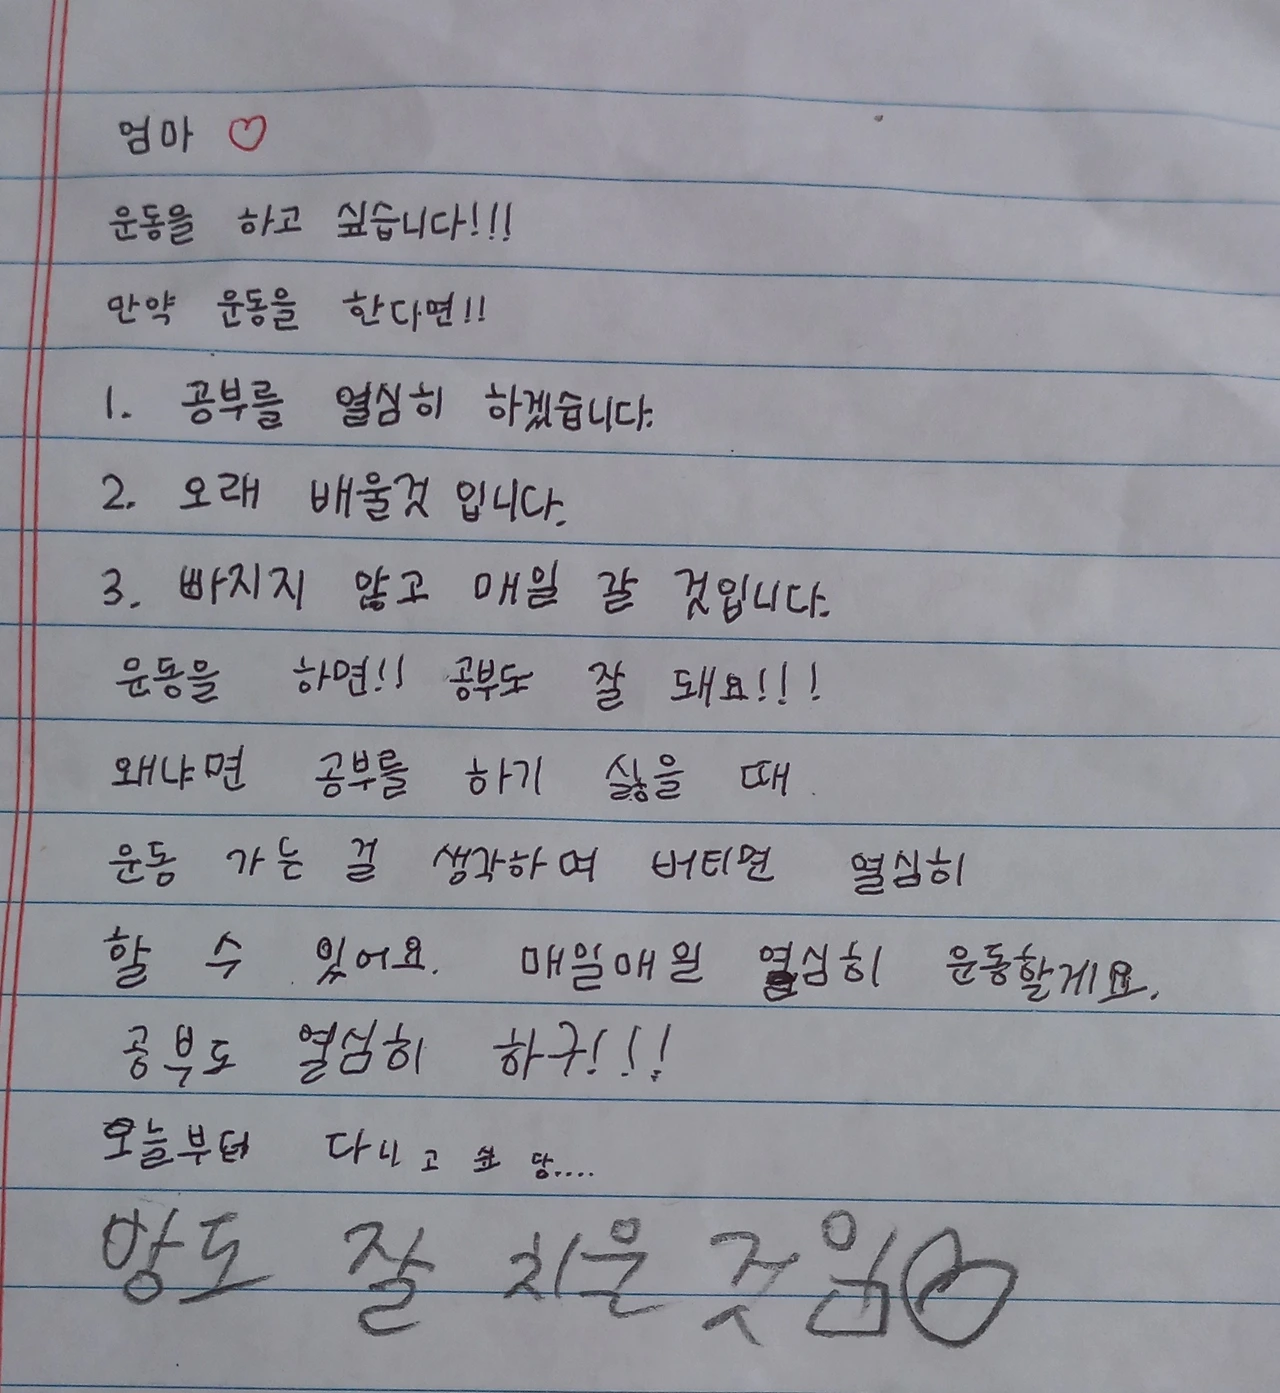 엄마 ♡
운동을 하고 싶습니다!!!
만약 운동을 한다면!!
1. 공부를 열심히 하겠습니다.
2. 오래 배울것 입니다.
3. 빠지지 않고 매일 갈 것입니다.
운동을 하면!! 공부도 잘 돼요!!!
왜냐면 공부를 하기 싫을 때
운동 가는 걸 생각하며 버티면 열심히
할 수 있어요. 매일매일 열심히 운동할게요.
공부도 열심히 하구!!!
오늘부터 다니고 싶당....
방도 잘 치울 것임♡